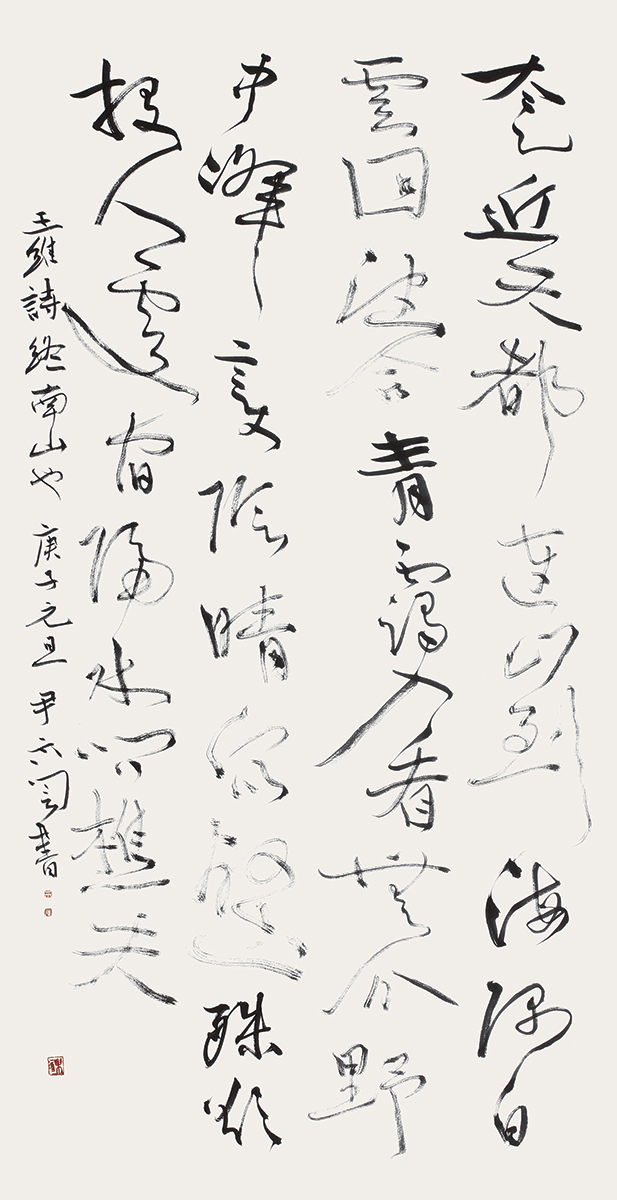 太乙近天都連山到海隅白
雲回望合青靄入看無分野
中峰變陰晴衆壑殊欲
投人處宿隔水問樵夫
王維詩終南山也 庚子元旦 尹 書